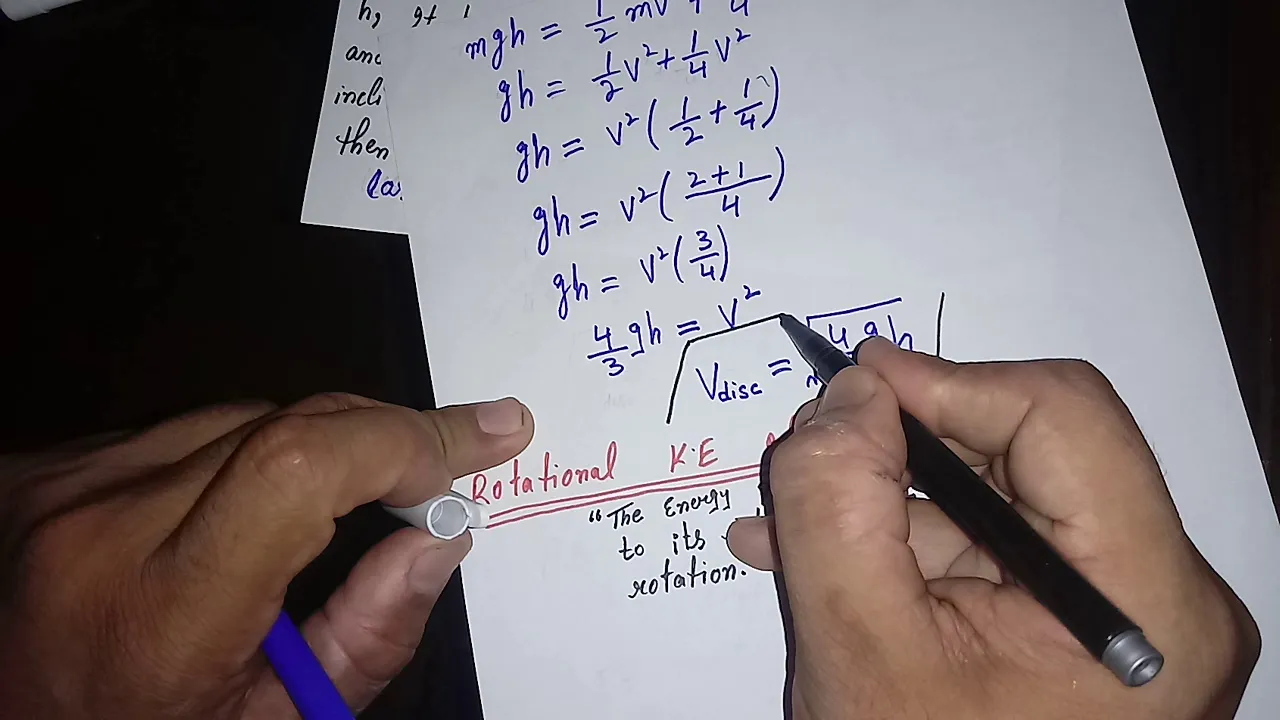 h,
and
incli
then
la
mgh = 1/2 mv
gh = 1/2 v² + 1/4 v²
gh = v² ( 1/2 + 1/4 )
gh = v² ( 2+1/4 )
gh = v² ( 3/4 )
4/3 gh = v²
Vdisc = √ 4gh
Rotational K.E
"The Energy
to its
rotation.